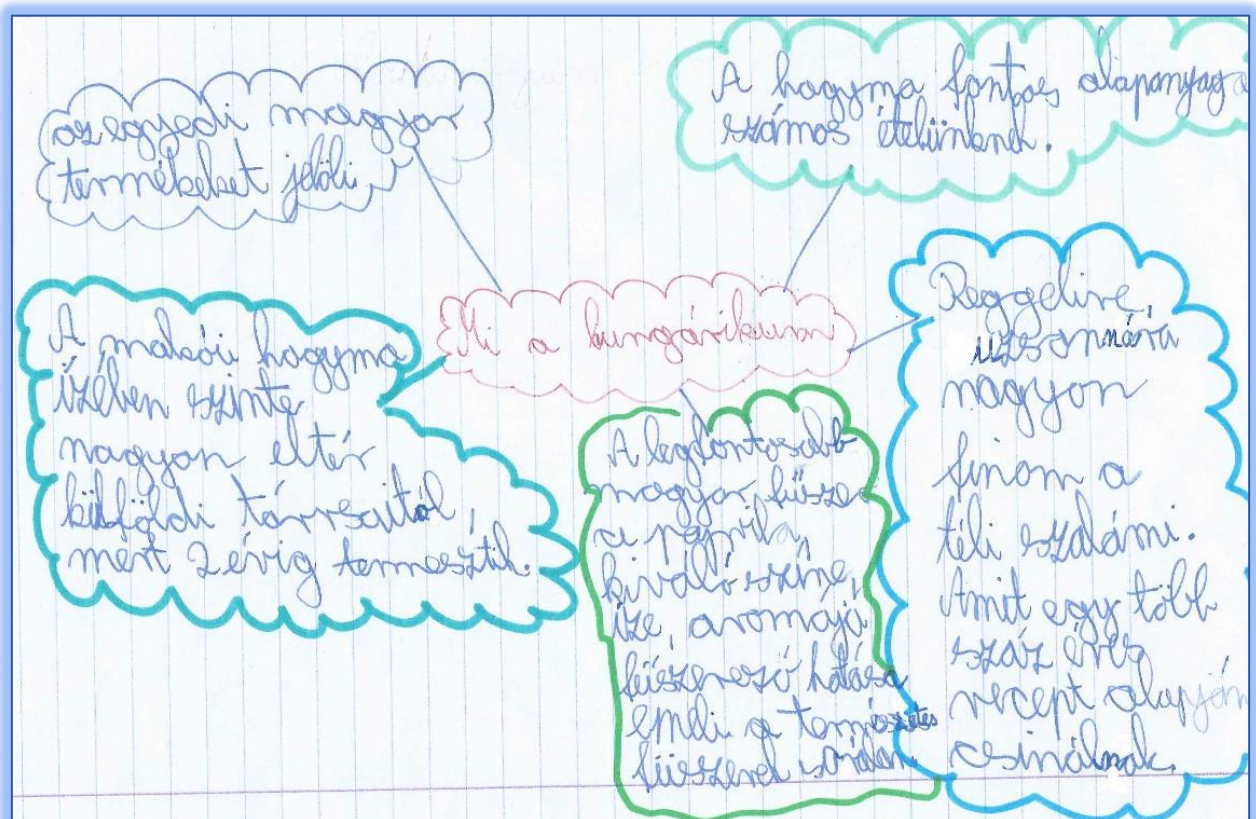 az egyedi magyar
termékeket jelöli
A hagyma fontos alapanyaga
számos ételünknek.
Mi a hungárikum
A makói hagyma
ízében szinte
nagyon eltér
külföldi társaitól,
mert 2 évig termesztik.
A legfontosabb
magyar fűszer
a paprika,
kiváló színe,
íze, aromája
fűszerező hatása
emeli a természetes
fűszerek sorában.
Reggelire,
uzsonnára
nagyon
finom a
téli szalámi.
Amit egy több
száz éves
recept alapján
csinálnak.